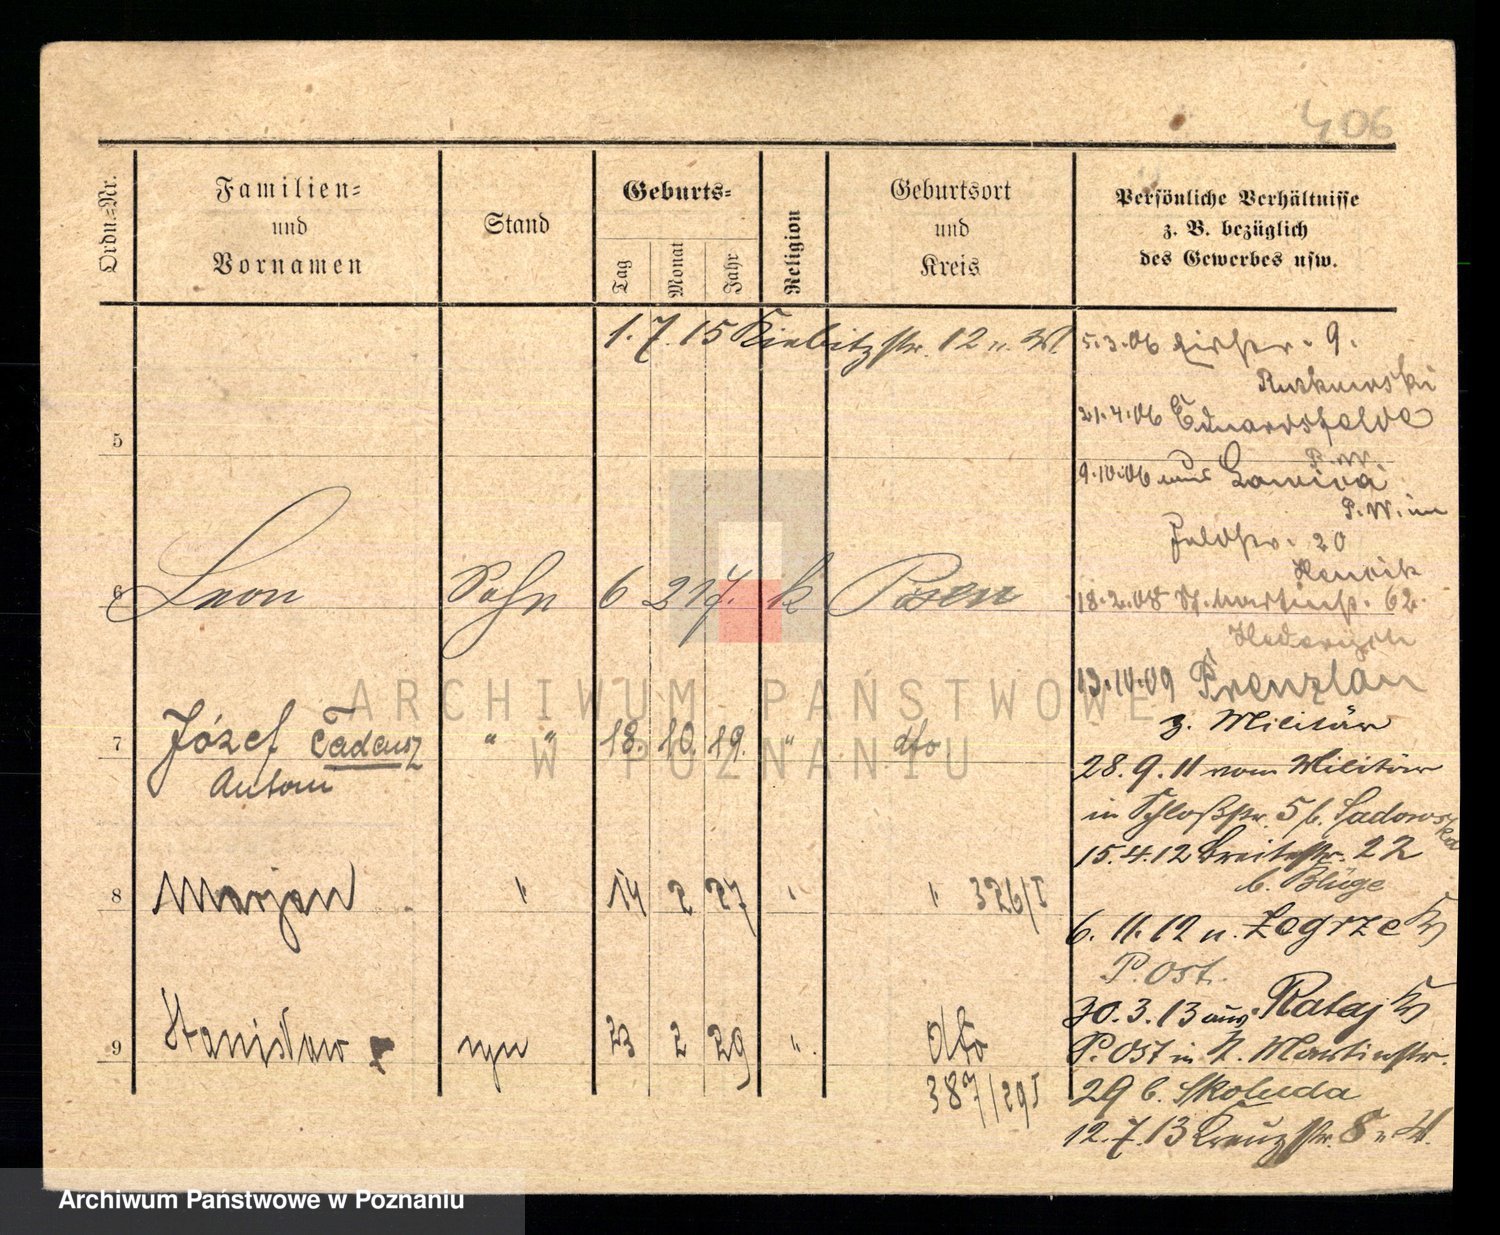 406
Ordn.-Nr.
Familien-
und
Vornamen
Stand
Geburts-
Tag
Monat
Jahr
Religion
Geburtsort
und
Kreis
Persönliche Verhältnisse
z. B. bezüglich
des Gewerbes usw.
1.7.15 Kiebitzstr. 12 u. W.
5
6 Leon Sohn 6 2 17. k Posen
7 Józef Tadeusz " " 18. 10. 19. " dto
Antoni
8 Marjan " 14 2 27 " " 326/I
9 Stanisław syn 23 2 29 " dto
387/29 I
5.3.06 9.
Rutkowski
21.4.06 Eduardsfelde
P.W.
9.10.06 aus Lawica
P.W. in
Feldstr. 20
Henrik
18.2.08 St. Martinstr. 62.
13.10.09 Prenzlau
z. Militär
28.9.11 vom Militär
in Schloßstr. 5 b. Sadowska
15.4.12 Breitestr. 22
b. Blüge
6.11.12 n. Zegrze
P. Ost.
30.3.13 aus Rataj
P. Ost in St. Martinstr.
29 b. Skoluda
12.7.13 Kreuzstr. 8 u. W.
ARCHIWUM PAŃSTWOWE
W POZNANIU
Archiwum Państwowe w Poznaniu